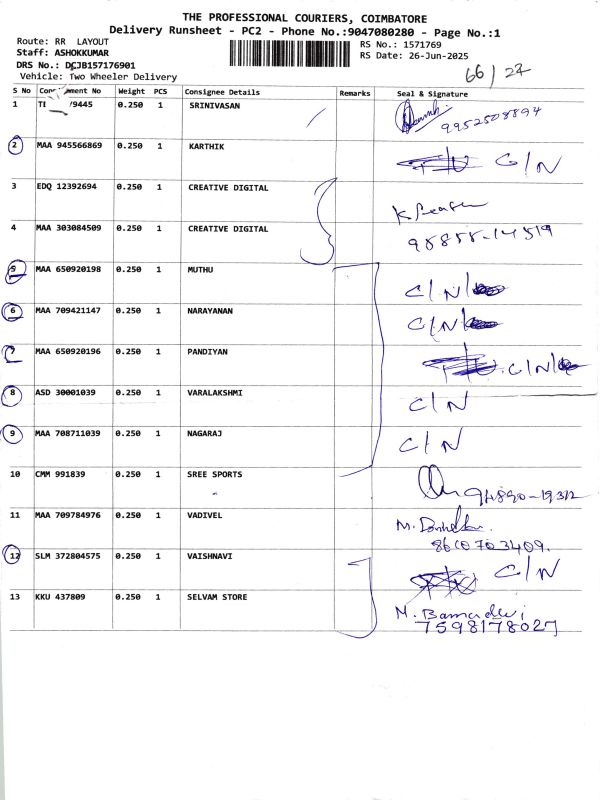 THE PROFESSIONAL COURIERS, COIMBATORE
Delivery Runsheet - PC2 - Phone No.:9047080280 - Page No.:1
Route: RR LAYOUT
Staff: ASHOKKUMAR
DRS No.: DCJB157176901
Vehicle: Two Wheeler Delivery
RS No.: 1571769
RS Date: 26-Jun-2025
66/27
S No Weight PCS Consignee Details Remarks Seal & Signature
1 9445 0.250 1 SRINIVASAN 9952508894
2 MAA 945566869 0.250 1 KARTHIK C/N
3 EDQ 12392694 0.250 1 CREATIVE DIGITAL
4 MAA 303084509 0.250 1 CREATIVE DIGITAL 95855-14519
5 MAA 650920198 0.250 1 MUTHU C/N
6 MAA 709421147 0.250 1 NARAYANAN C/N
7 MAA 650920196 0.250 1 PANDIYAN C/N
8 ASD 30001039 0.250 1 VARALAKSHMI C/N
9 MAA 708711039 0.250 1 NAGARAJ C/N
10 CMM 991839 0.250 1 SREE SPORTS 94890-19312
11 MAA 709784976 0.250 1 VADIVEL M.
8610703409.
12 SLM 372804575 0.250 1 VAISHNAVI C/N
13 KKU 437809 0.250 1 SELVAM STORE M. Bamadevi
7598178027